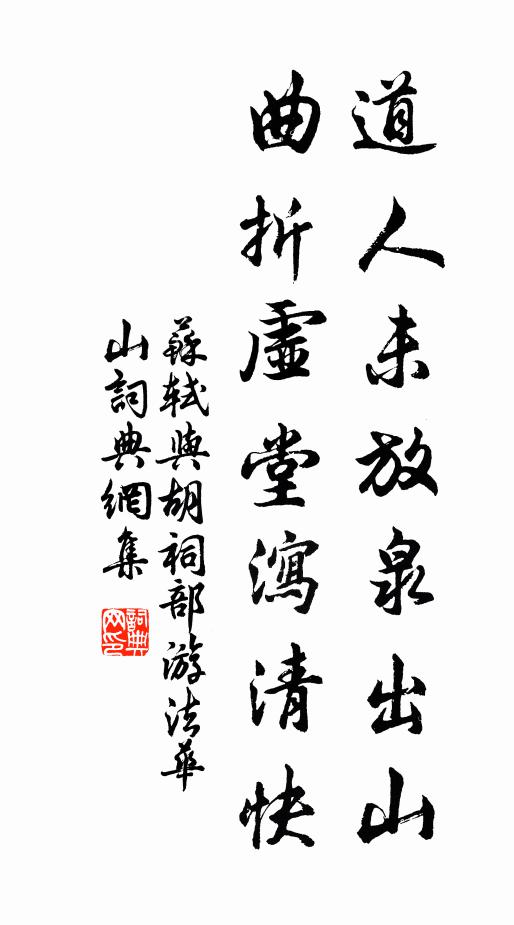 道人未放泉出山
曲折虛堂瀉清快
蘇軾與胡祠部游法華
山詞典網集
詞典